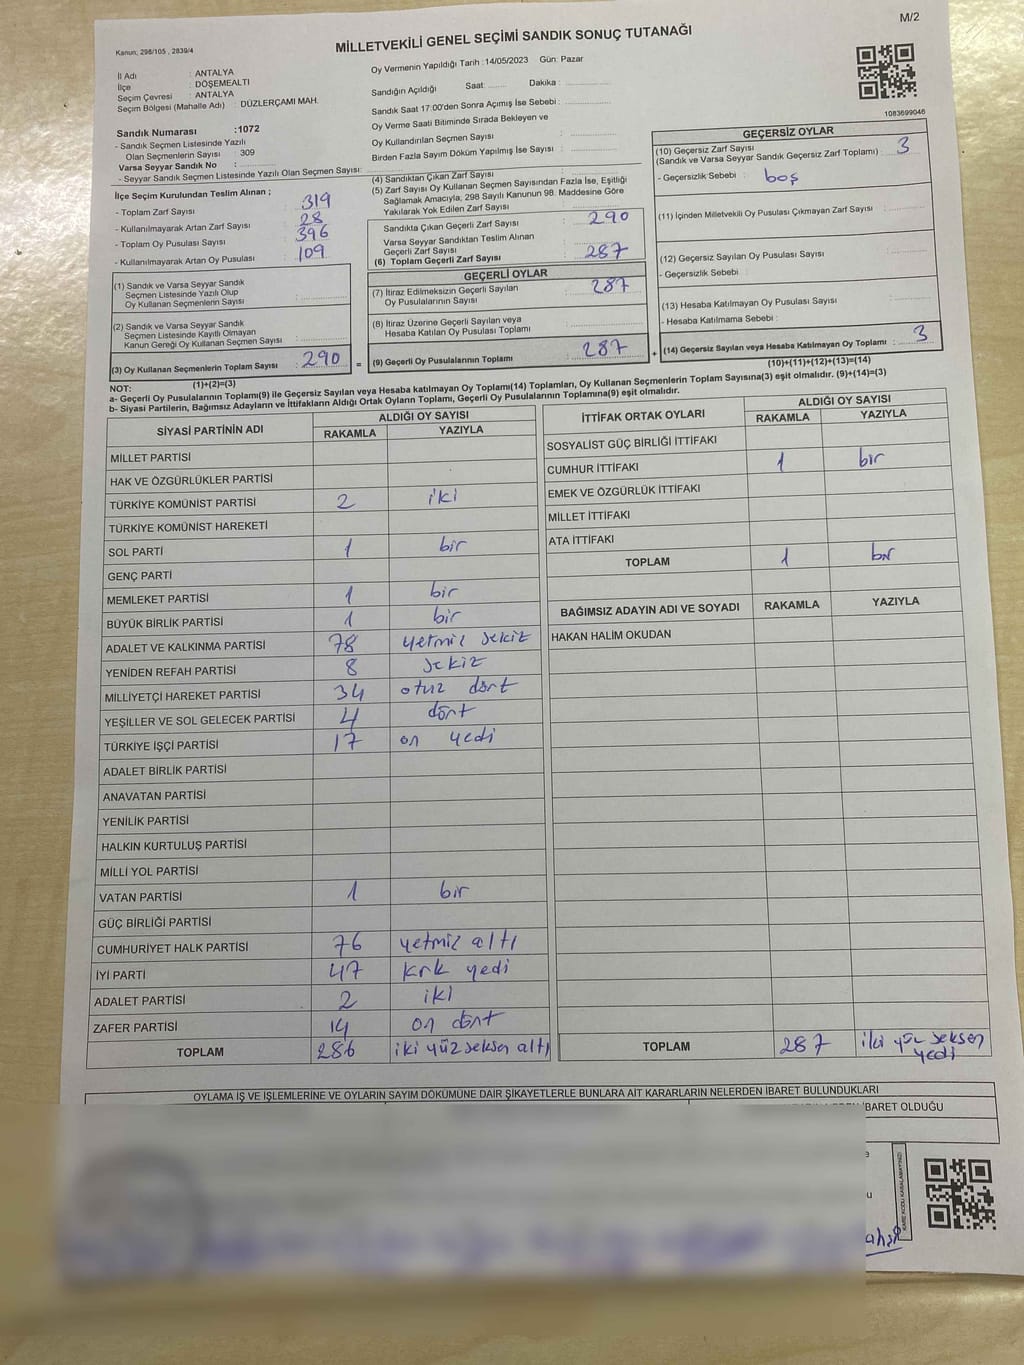 M/2
Kanun; 298/105 , 2839/4
MİLLETVEKİLİ GENEL SEÇİMİ SANDIK SONUÇ TUTANAĞI
İl Adı : ANTALYA
İlçe : DÖŞEMEALTI
Seçim Çevresi : ANTALYA
Seçim Bölgesi (Mahalle Adı) : DÜZLERÇAMI MAH.
Sandık Numarası :1072
- Sandık Seçmen Listesinde Yazılı
Olan Seçmenlerin Sayısı : 309
Varsa Seyyar Sandık No :
- Seyyar Sandık Seçmen Listesinde Yazılı Olan Seçmen Sayısı:
Oy Vermenin Yapıldığı Tarih : 14/05/2023 Gün: Pazar
Sandığın Açıldığı Saat: Dakika :
Sandık Saat 17:00'den Sonra Açımış İse Sebebi :
Oy Verme Saati Bitiminde Sırada Bekleyen ve
Oy Kullandırılan Seçmen Sayısı :
Birden Fazla Sayım Döküm Yapılmış İse Sayısı :
1083699046
İlçe Seçim Kurulundan Teslim Alınan ;
- Toplam Zarf Sayısı : 319
- Kullanılmayarak Artan Zarf Sayısı : 28
- Toplam Oy Pusulası Sayısı : 396
- Kullanılmayarak Artan Oy Pusulası : 109
(1) Sandık ve Varsa Seyyar Sandık
Seçmen Listesinde Yazılı Olup
Oy Kullanan Seçmenlerin Sayısı :
(2) Sandık ve Varsa Seyyar Sandık
Seçmen Listesinde Kayıtlı Olmayan
Kanun Gereği Oy Kullanan Seçmen Sayısı :
(3) Oy Kullanan Seçmenlerin Toplam Sayısı : 290
(1)+(2)=(3)
(4) Sandıktan Çıkan Zarf Sayısı :
(5) Zarf Sayısı Oy Kullanan Seçmen Sayısından Fazla İse, Eşitliği
Sağlamak Amacıyla; 298 Sayılı Kanunun 98. Maddesine Göre
Yakılarak Yok Edilen Zarf Sayısı :
Sandıkta Çıkan Geçerli Zarf Sayısı : 290
Varsa Seyyar Sandıktan Teslim Alınan
Geçerli Zarf Sayısı :
(6) Toplam Geçerli Zarf Sayısı : 287
GEÇERLİ OYLAR
(7) İtiraz Edilmeksizin Geçerli Sayılan
Oy Pusulalarının Sayısı : 287
(8) İtiraz Üzerine Geçerli Sayılan veya
Hesaba Katılan Oy Pusulası Toplamı :
= (9) Geçerli Oy Pusulalarının Toplamı : 287 +
GEÇERSİZ OYLAR
(10) Geçersiz Zarf Sayısı
(Sandık ve Varsa Seyyar Sandık Geçersiz Zarf Toplamı) : 3
- Geçersizlik Sebebi : boş
(11) İçinden Milletvekili Oy Pusulası Çıkmayan Zarf Sayısı :
(12) Geçersiz Sayılan Oy Pusulası Sayısı :
- Geçersizlik Sebebi :
(13) Hesaba Katılmayan Oy Pusulası Sayısı :
- Hesaba Katılmama Sebebi :
(14) Geçersiz Sayılan veya Hesaba Katılmayan Oy Toplamı : 3
(10)+(11)+(12)+(13)=(14)
NOT:
a- Geçerli Oy Pusulalarının Toplamı(9) ile Geçersiz Sayılan veya Hesaba katılmayan Oy Toplamı(14) Toplamları, Oy Kullanan Seçmenlerin Toplam Sayısına(3) eşit olmalıdır. (9)+(14)=(3)
b- Siyasi Partilerin, Bağımsız Adayların ve İttifakların Aldığı Ortak Oyların Toplamı, Geçerli Oy Pusulalarının Toplamına(9) eşit olmalıdır.
SİYASİ PARTİNİN ADI
ALDIĞI OY SAYISI
RAKAMLA YAZIYLA
MİLLET PARTİSİ
HAK VE ÖZGÜRLÜKLER PARTİSİ
TÜRKİYE KOMÜNİST PARTİSİ 2 iki
TÜRKİYE KOMÜNİST HAREKETİ
SOL PARTİ 1 bir
GENÇ PARTİ
MEMLEKET PARTİSİ 1 bir
BÜYÜK BİRLİK PARTİSİ 1 bir
ADALET VE KALKINMA PARTİSİ 78 yetmiş sekiz
YENİDEN REFAH PARTİSİ 8 sekiz
MİLLİYETÇİ HAREKET PARTİSİ 34 otuz dört
YEŞİLLER VE SOL GELECEK PARTİSİ 4 dört
TÜRKİYE İŞÇİ PARTİSİ 17 on yedi
ADALET BİRLİK PARTİSİ
ANAVATAN PARTİSİ
YENİLİK PARTİSİ
HALKIN KURTULUŞ PARTİSİ
MİLLİ YOL PARTİSİ
VATAN PARTİSİ 1 bir
GÜÇ BİRLİĞİ PARTİSİ
CUMHURİYET HALK PARTİSİ 76 yetmiş altı
İYİ PARTİ 47 kırk yedi
ADALET PARTİSİ 2 iki
ZAFER PARTİSİ 14 on dört
TOPLAM 286 iki yüz seksen altı
İTTİFAK ORTAK OYLARI
ALDIĞI OY SAYISI
RAKAMLA YAZIYLA
SOSYALİST GÜÇ BİRLİĞİ İTTİFAKI
CUMHUR İTTİFAKI 1 bir
EMEK VE ÖZGÜRLÜK İTTİFAKI
MİLLET İTTİFAKI
ATA İTTİFAKI
TOPLAM 1 bir
BAĞIMSIZ ADAYIN ADI VE SOYADI RAKAMLA YAZIYLA
HAKAN HALİM OKUDAN
TOPLAM 287 iki yüz seksen
yedi
OYLAMA İŞ VE İŞLEMLERİNE VE OYLARIN SAYIM DÖKÜMÜNE DAİR ŞİKAYETLERLE BUNLARA AİT KARARLARIN NELERDEN İBARET BULUNDUKLARI
İBARET OLDUĞU
KARE KODU KARALAMAYINIZ!